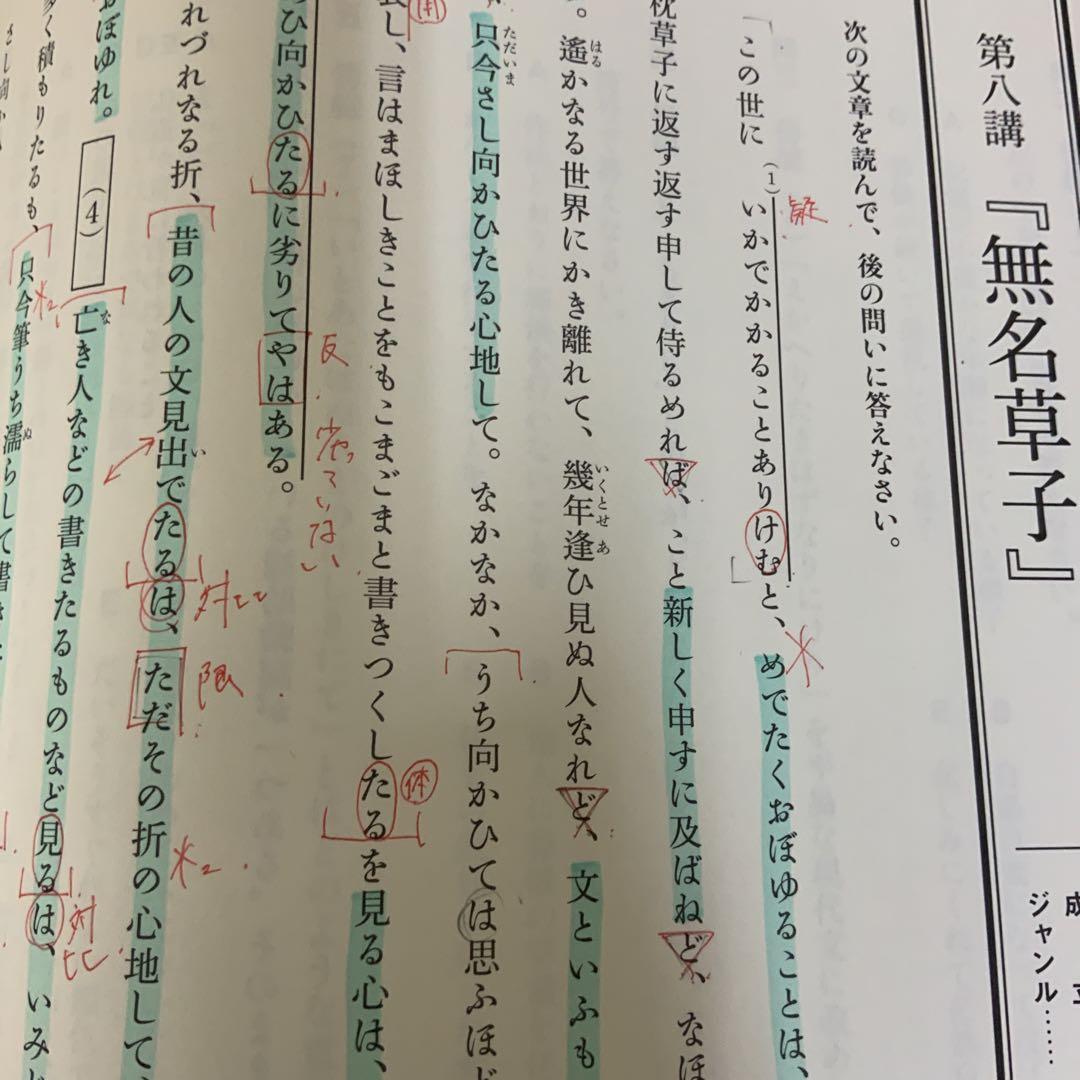 第八講 『無名草子』
成立
ジャンル……
次の文章を読んで、後の問いに答えなさい。
「この世に(1)いかでかかることありけむと、めでたくおぼゆることは、
疑
枕草子に返す返す申して侍るめれば、こと新しく申すに及ばねど、なほ
。遙かなる世界にかき離れて、幾年逢ひ見ぬ人なれど、文といふも
はる
いくとせ
あ
只今さし向かひたる心地して。なかなか、うち向かひては思ふほど
ただいま
し、言はまほしきことをもこまごまと書きつくしたるを見る心は、
用
体
ひ向かひたるに劣りてやはある。
反
劣っていない
れづれなる折、昔の人の文見出でたるは、ただその折の心地して、
い
対比
限
※2
おぼゆれ。(4)亡き人などの書きたるものなど見るは、いみじ
な
対比
く積もりたるも、只今筆うち濡らして書き
※2
ぬ
さし向か